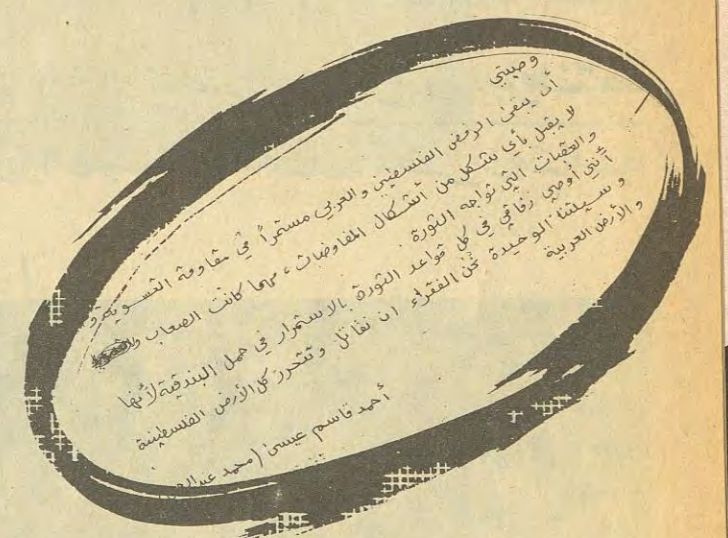 وصيتي
أن يبقى الرفض الفلسطيني والعربي مستمراً في مقاومة التسوية و
لا يقبل بأي شكل من أشكال المفاوضات، مهما كانت الصعاب
والعقبات التي تواجه الثورة.
أنني أوصي رفاقي في كل قواعد الثورة بالاستمرار في حمل البندقية لأنها
وسيلتنا الوحيدة نحن الفقراء ان نقاتل وتتحرر كل الأرض الفلسطينية
والأرض العربية
أحمد قاسم عيسى (محمد